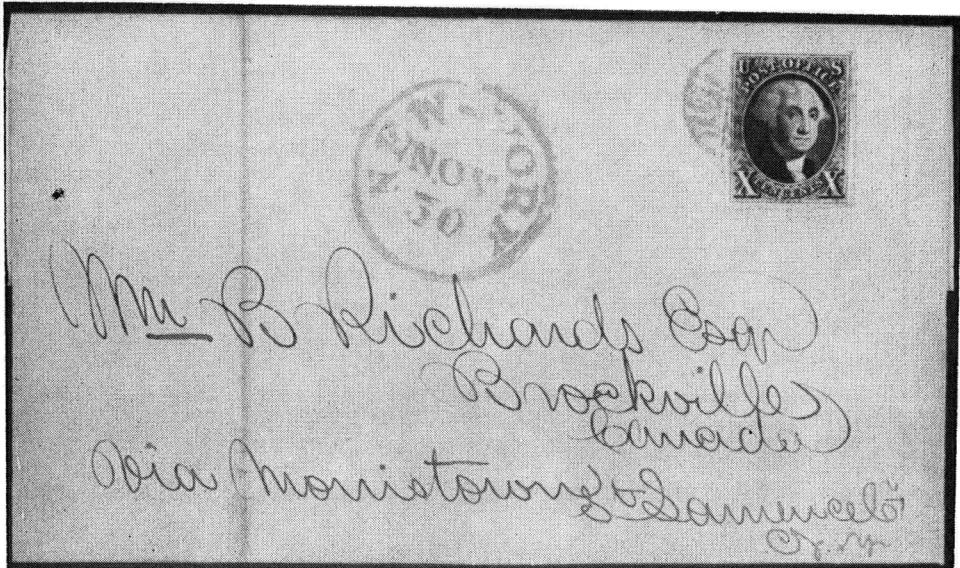 U S
POST OFFICE
X TEN CENTS X
NEW-YORK
NOV
30
Mr B Richards Esqr
Brockville
Canada
Via Morristown St Lawrence Co
N.Y.